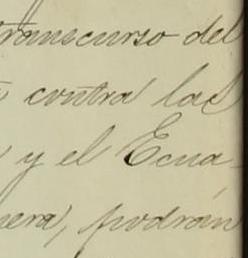 transcurso del
contra las
y el Ecua-
nera, podrán